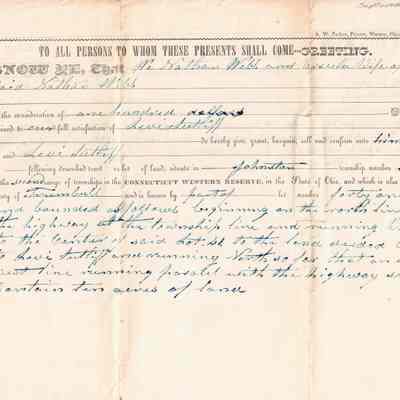 A. W. Parker, Printer, Warren, Ohio
TO ALL PERSONS TO WHOM THESE PRESENTS SHALL COME—GREETING.
KNOW YE, That We Nathan Webb and Wife
said Nathan Webb
the consideration of one hundred dollars
full satisfaction of Levi Sutliff
do hereby give, grant, bargain, sell and confirm unto him
said Levi Sutliff
following described tract of land, situate in Johnston township number
range of townships in the CONNECTICUT WESTERN RESERVE, in the State of Ohio, and which is also
of Trumbull and is known by part of lot number forty
and bounded as follows beginning on the north line
the highway at the township line and running
to the center of said lot to the land deeded
to Levi Sutliff and running North so far that an
west line running parallel with the highway
contain ten acres of land